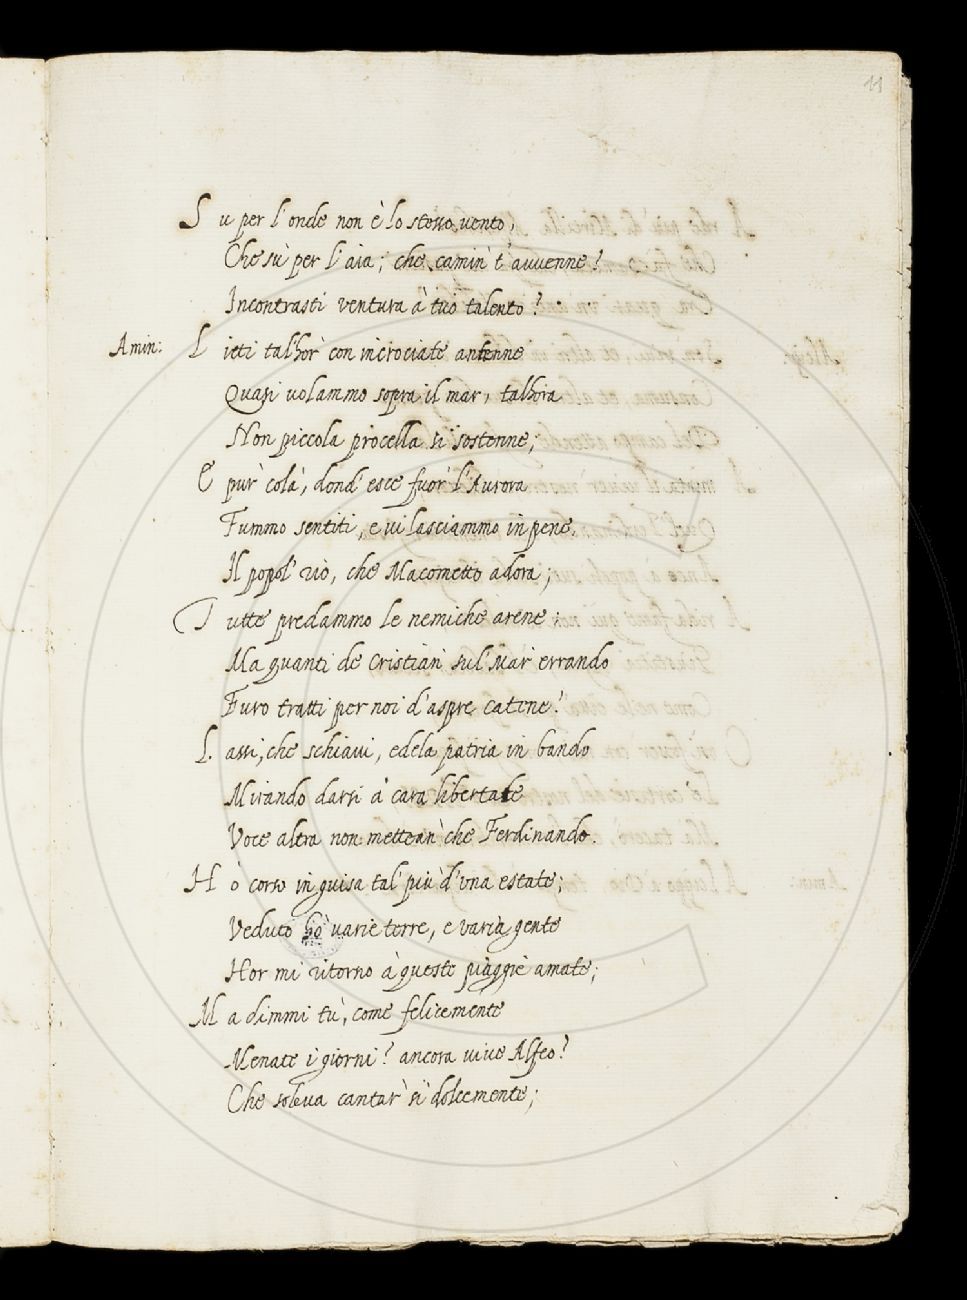 11
Su per l'onde non è lo stesso vento,
Che sù per l'aia; che camin t'auuenne?
Incontrasti ventura à tuo talento?
Amin: Lieti talhor con incrociate antenne
Quasi uolammo sopra il mar, talhora
Non piccola procella si sostenne;
E pur colà, dond' esce fuor l'Aurora
Fummo sentiti, e ui lasciammo in pene
Il popol rio, che Macometto adora;
Tutte predammo le nemiche arene;
Ma quanti de Cristian sul Mar errando
Furo tratti per noi d'aspre catene!
Lassi, che schiaui, e dela patria in bando
Mirando darsi à cara libertate
Voce altra non mettean che Ferdinando.
Hò corso in guisa tal più d'una estate;
Veduto hò varie terre, e varia gente
Hor mi ritorno à queste piaggie amate;
Ma dimmi tù, come felicemente
Menate i giorni? ancora uiue Alfeo?
Che soleua cantar sì dolcemente;